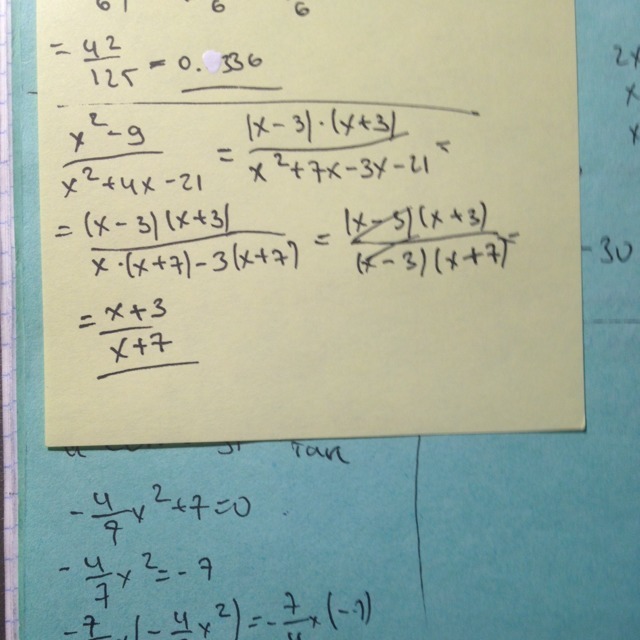 6 6 6
= 42/125 = 0.336
(x² - 9)/(x² + 4x - 21) = (x - 3)·(x + 3)/(x² + 7x - 3x - 21) =
= (x - 3)(x + 3)/(x·(x + 7) - 3(x + 7)) = (x - 3)(x + 3)/(x - 3)(x + 7) =
= (x + 3)/(x + 7)
2x
x
x
- 30
-4/7 x² + 7 = 0
-4/7 x² = - 7
-7/4 x (-4/7 x²) = -7/4 x (-7)